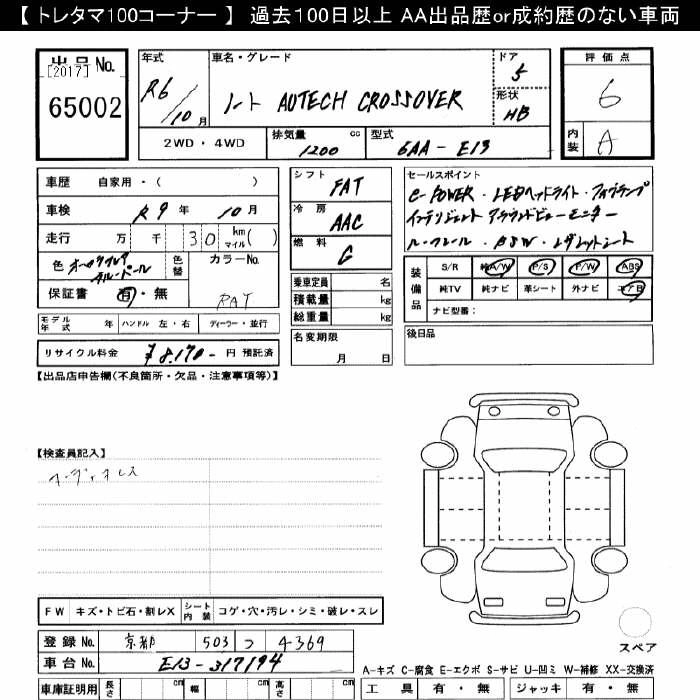 【 トレタマ100コーナー 】 過去100日以上 AA出品歴or成約歴のない車両
出品 No.
[2017]
65002
年式
R6/10月
車名・グレード
ノート AUTECH CROSSOVER
ドア
5
形状
HB
評価点
6
内装
A
2WD・4WD
排気量
1200 cc
型式
6AA-E13
車歴 自家用・( )
車検 R9年 10月
走行 万 千 30 km マイル( )
色
色替
カラーNo.
RAY
保証書 有・無
シフト FAT
冷房 AAC
燃料 G
乗車定員 名
積載量 kg
総重量 kg
セールスポイント
e-POWER・LEDヘッドライト・フォグランプ
インテリジェント アラウンドビューモニター
ルーフレール・BSW・レザレットシート
装備品
S/R 純A/W P/S P/W ABS
純TV 純ナビ 革シート 外ナビ エアB
ナビ型番:
モデル年式 年 ハンドル 左・右 ディーラー・並行
名変期限
月 日
後日品
リサイクル料金 ¥8,170- 円 預託済
【出品店申告欄(不良箇所・欠品・注意事項等)】
【検査員記入】
オーディオレス
FW キズ・トビ石・割レX シート内装 コゲ・穴・汚レ・シミ・破レ・スレ
登録 No. 京都 503 つ 4369
車台 No. E13-317194
スペア
A-キズ C-腐食 E-エクボ S-サビ U-凹ミ W-補修 XX-交換済
車庫証明用 長さ cm 幅 cm 高さ cm
工具 有・無 ジャッキ 有・無